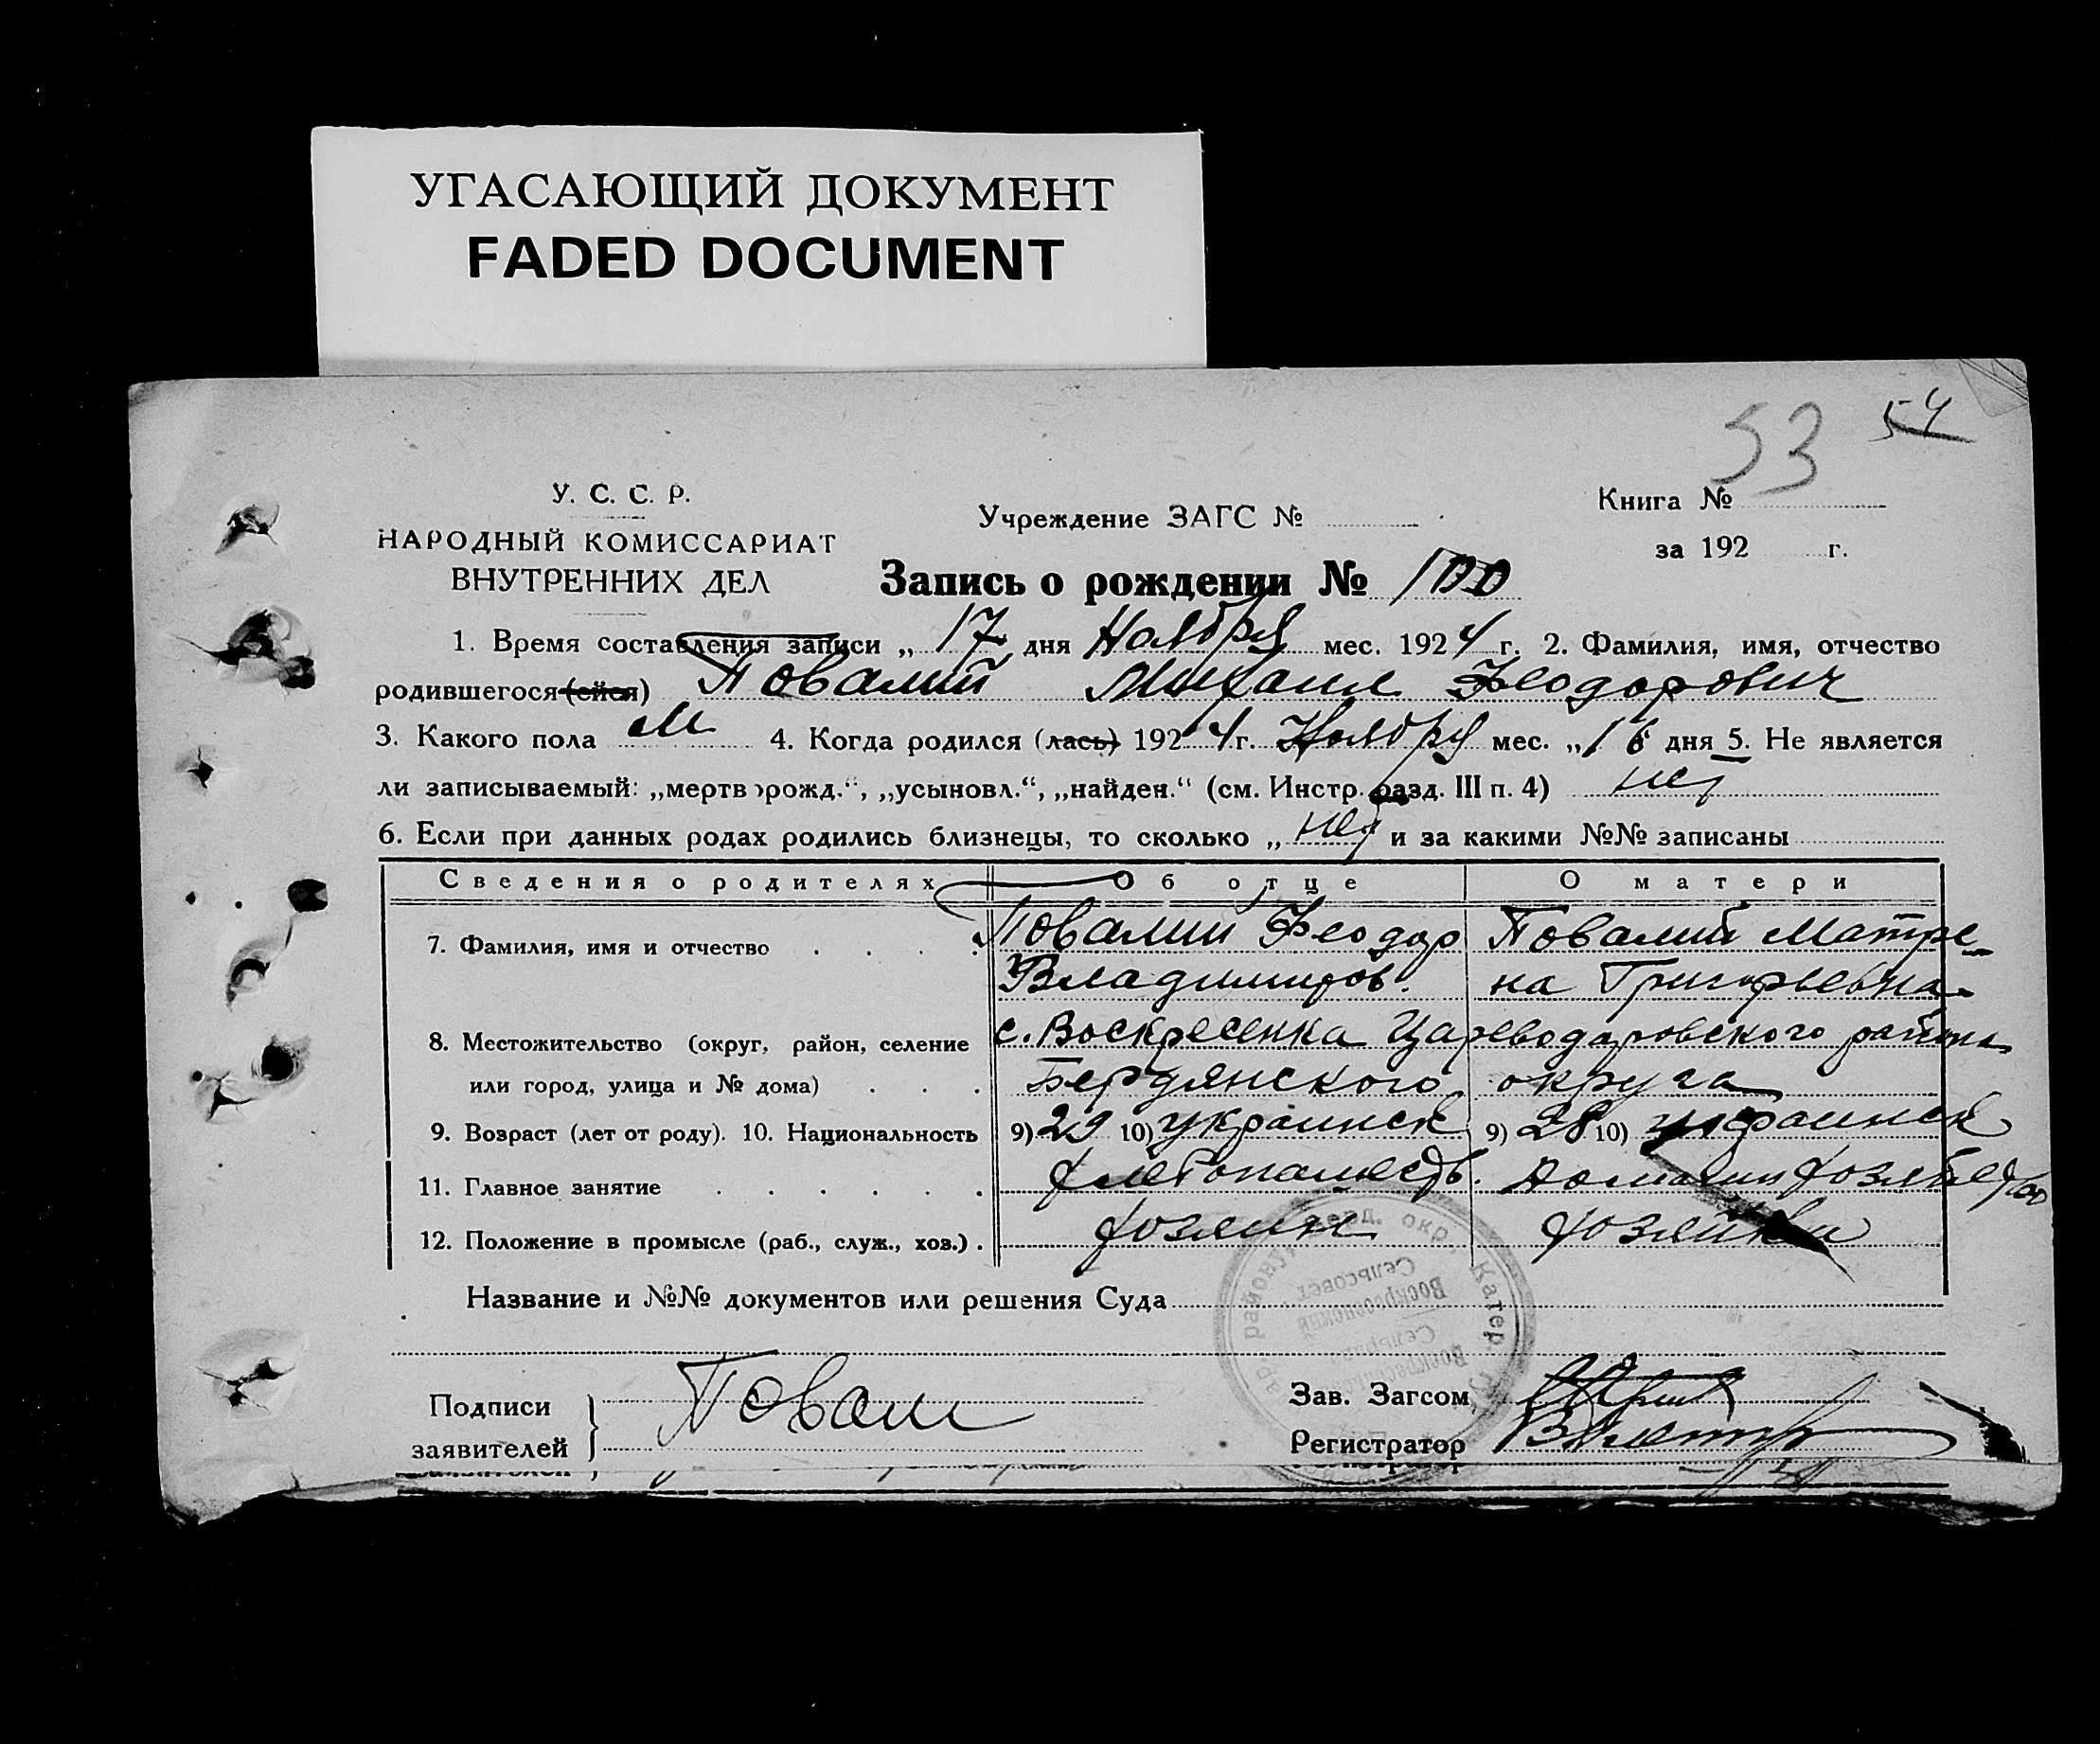 УГАСАЮЩИЙ ДОКУМЕНТ
FADED DOCUMENT
53 54
У. С. С. Р.
НАРОДНЫЙ КОМИССАРИАТ
ВНУТРЕННИХ ДЕЛ
Учреждение ЗАГС №
Книга №
за 192 г.
Запись о рождении № 100
1. Время составления записи „ 17 дня Ноября мес. 1924 г. 2. Фамилия, имя, отчество
родившегося (ейся) Повалий Михаил Феодорович
3. Какого пола М 4. Когда родился (лась) 1924 г. Ноября мес. „16 дня 5. Не является
ли записываемый: „мертворожд.“, „усыновл.“, „найден.“ (см. Инстр. разд. III п. 4) нет
6. Если при данных родах родились близнецы, то сколько „ нет и за какими №№ записаны
Сведения о родителях Об отце О матери
7. Фамилия, имя и отчество Повалий Феодор Повалий Матре-
Владимиров. на Григорьевна
8. Местожительство (округ, район, селение с. Воскресенка Цареводаровского района
или город, улица и № дома) Бердянского округа
9. Возраст (лет от роду). 10. Национальность 9) 29 10) украинск 9) 28 10) украинск
11. Главное занятие хлебопашеств.
12. Положение в промысле (раб., служ., хоз.) хозяин хозяйка
Название и №№ документов или решения Суда
Подписи
заявителей
Повали
Зав. Загсом
Регистратор
Воскресенский
Сельсовет